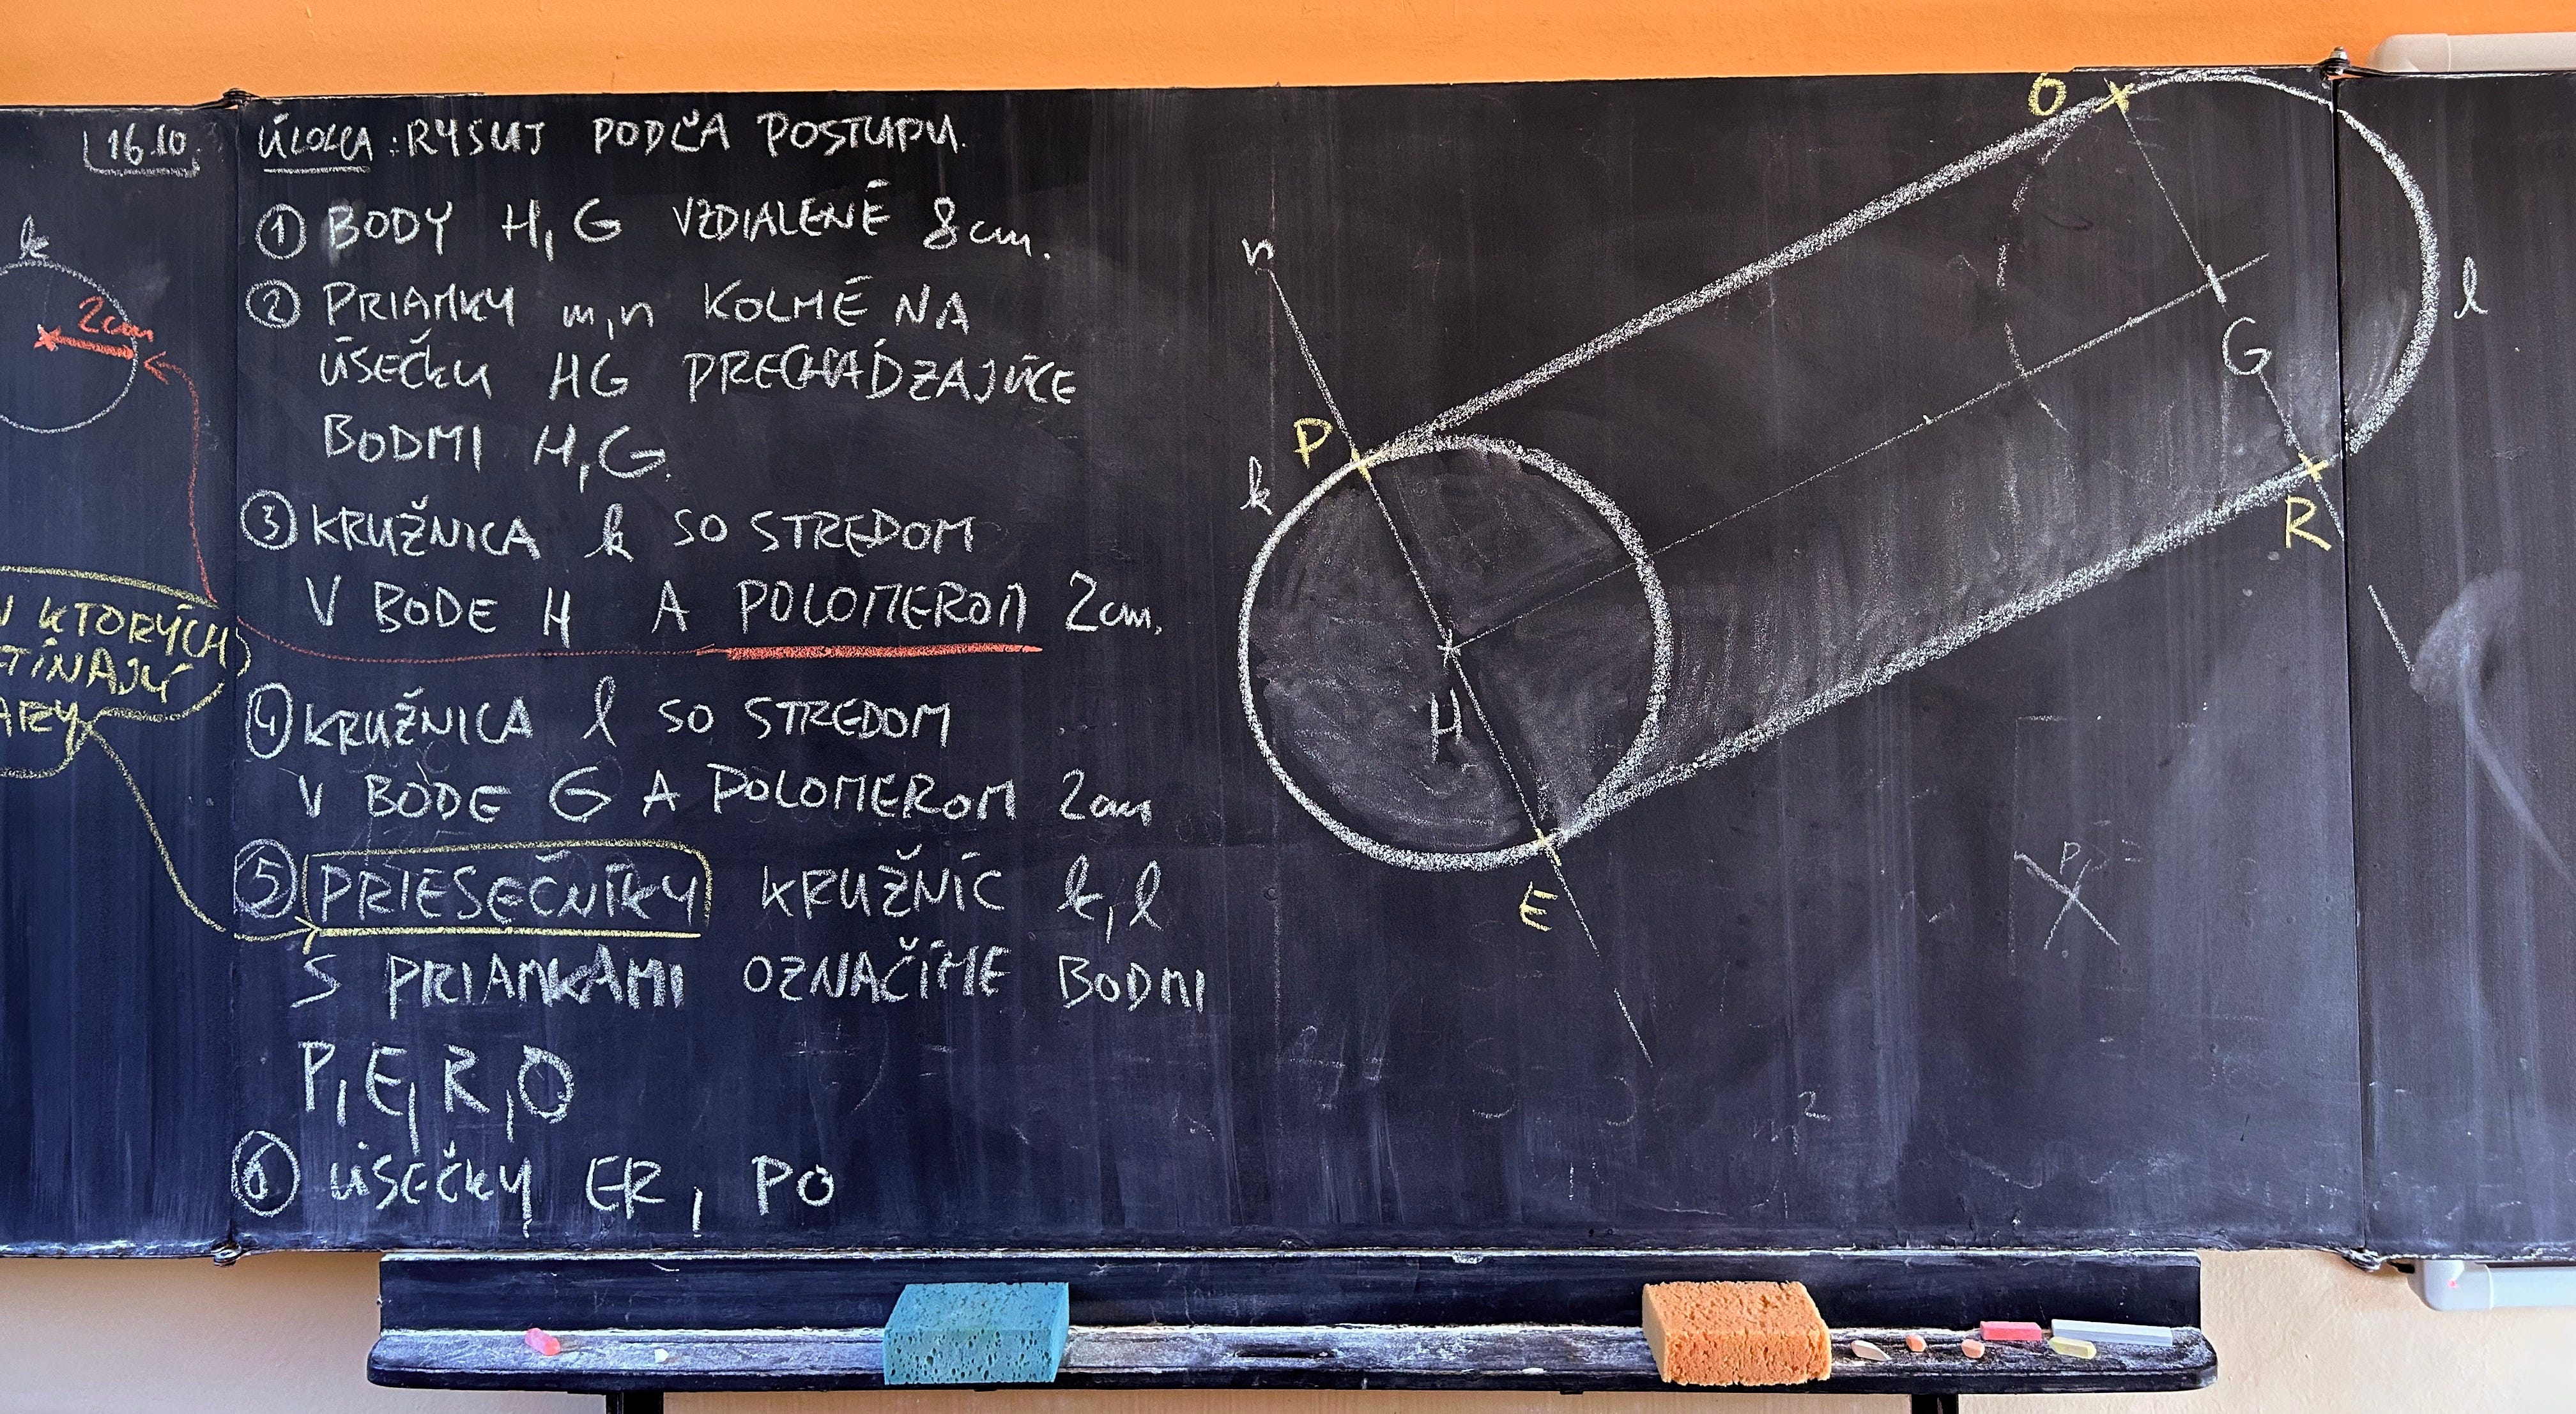 16.10.
k
2cm
V KTORÝCH
ARY
ÚLOHA: RYSUJ PODĽA POSTUPU.
① BODY H, G VZDIALENÉ 8cm.
② PRIAMKY m, n KOLMÉ NA
ÚSEČKU HG PRECHÁDZAJÚCE
BODMI H, G.
③ KRUŽNICA k SO STREDOM
V BODE H A POLOMEROM 2cm.
④ KRUŽNICA l SO STREDOM
V BODE G A POLOMEROM 2cm
⑤ PRIESEČNÍKY KRUŽNÍC k, l
S PRIAMKAMI OZNAČÍME BODMI
P, E, R, O
⑥ ÚSEČKY ER, PO
O
n
l
G
P
k
R
H
E